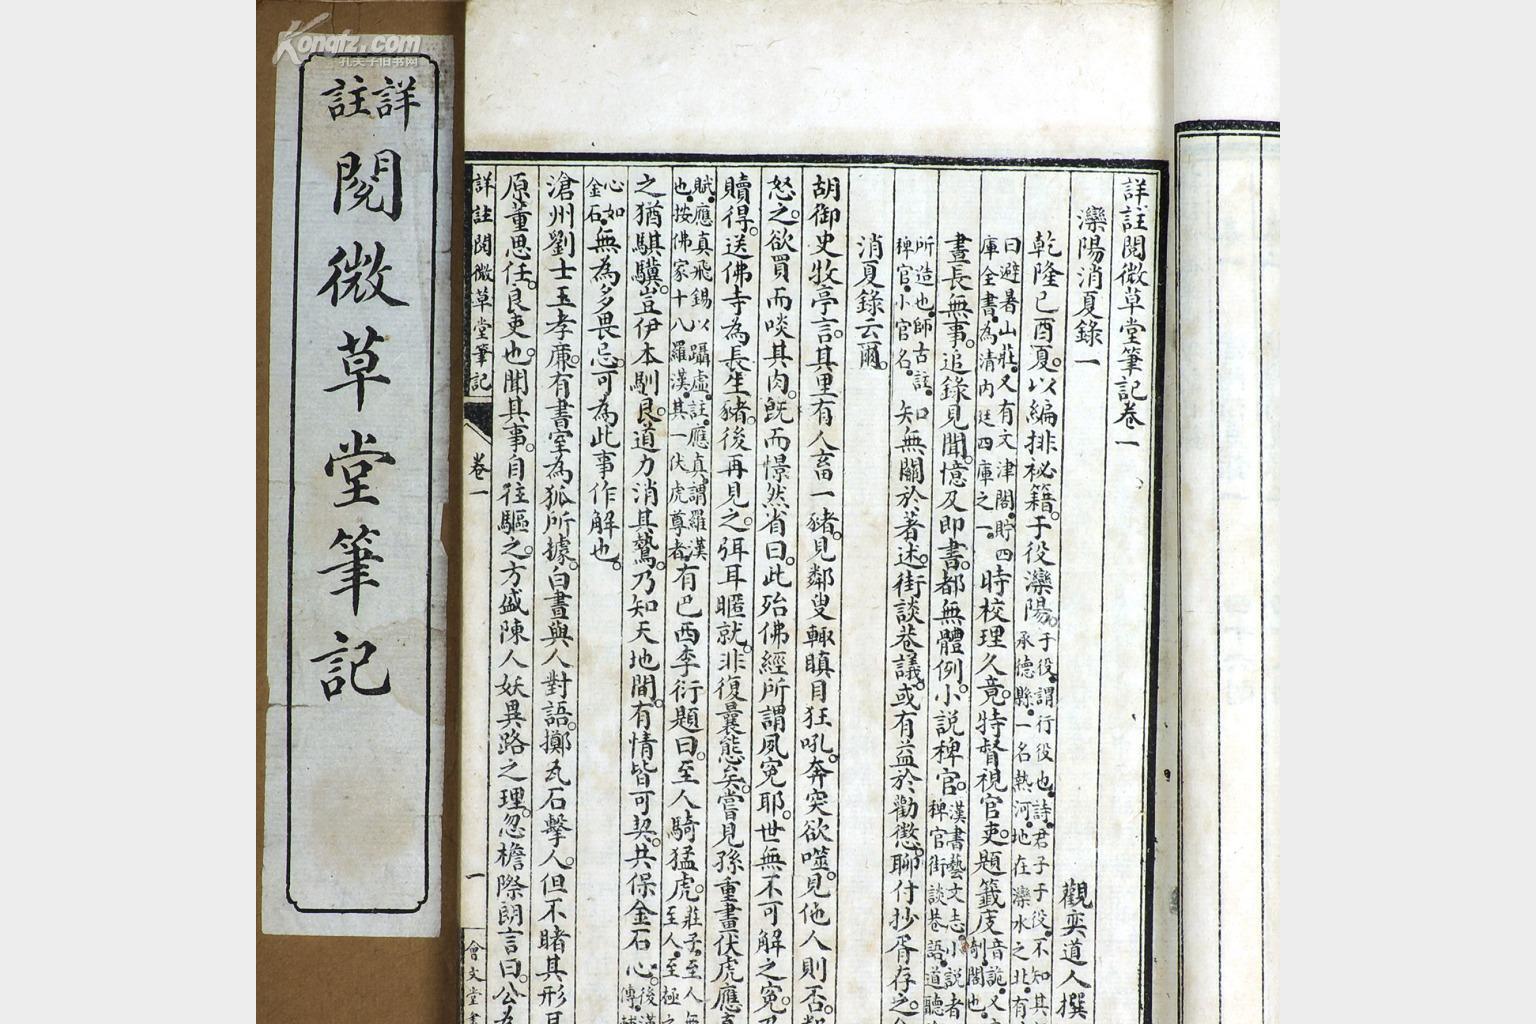 Kongfz.com
孔夫子旧书网
詳註
閱微草堂筆記
詳註閱微草堂筆記卷一
灤陽消夏錄一
觀奕道人撰
乾隆己酉夏。以編排祕籍。于役灤陽。于役。謂行役也。詩。君子于役。不知其 承德縣。一名熱河。地在灤水之北。有
曰避暑山莊。又有文津閣。貯四庫全書。為清內廷四庫之一。時校理久竟。特督視官吏。題籤庋音詭。又 閣也。
晝長無事。追錄見聞。憶及即書。都無體例。小說稗官。漢書藝文志。小說者 稗官街談巷語。道聽
所造也。師古註。稗官。小官名。知無關於著述。街談巷議。或有益於勸懲。聊付抄胥存之。
消夏錄云爾。
胡御史牧亭言。其里有人畜一豬。見鄰叟輒瞋目狂吼。奔突欲噬。見他人則否。
怒之。欲買而啖其肉。旣而憬然省曰。此殆佛經所謂夙冤耶。世無不可解之冤。乃
贖得。送佛寺為長生豬。後再見之。弭耳暱就。非復曩態矣。嘗見孫重畫伏虎應真
賦。應真飛錫以躡虛。註。應真謂羅漢也。按佛家十八羅漢。其一伏虎尊者。有巴西李衍題曰。至人騎猛虎。莊子。至人無 至人。至極之
之猶騏驥。豈伊本馴良。道力消其鷙。乃知天地間。有情皆可契。共保金石心。後漢 傳。
心如金石。無為多畏忌。可為此事作解也。
滄州劉士玉孝廉。有書室為狐所據。白晝與人對語。擲瓦石擊人。但不睹其形
原董思任。良吏也。聞其事。自往驅之。方盛陳人妖異路之理。忽檐際朗言曰。公為
詳註閱微草堂筆記
卷一
一
會文堂書